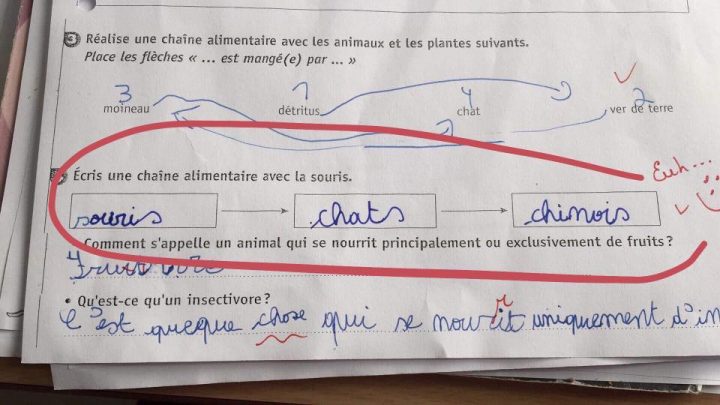 3 Réalise une chaîne alimentaire avec les animaux et les plantes suivants.
Place les flèches « ... est mangé(e) par ... »
3 1 4 2
moineau détritus chat ver de terre
Écris une chaîne alimentaire avec la souris.
Euh...
souris chats chinois
Comment s'appelle un animal qui se nourrit principalement ou exclusivement de fruits ?
• Qu'est-ce qu'un insectivore ?
C'est queque chose qui se nourit uniquement d'in